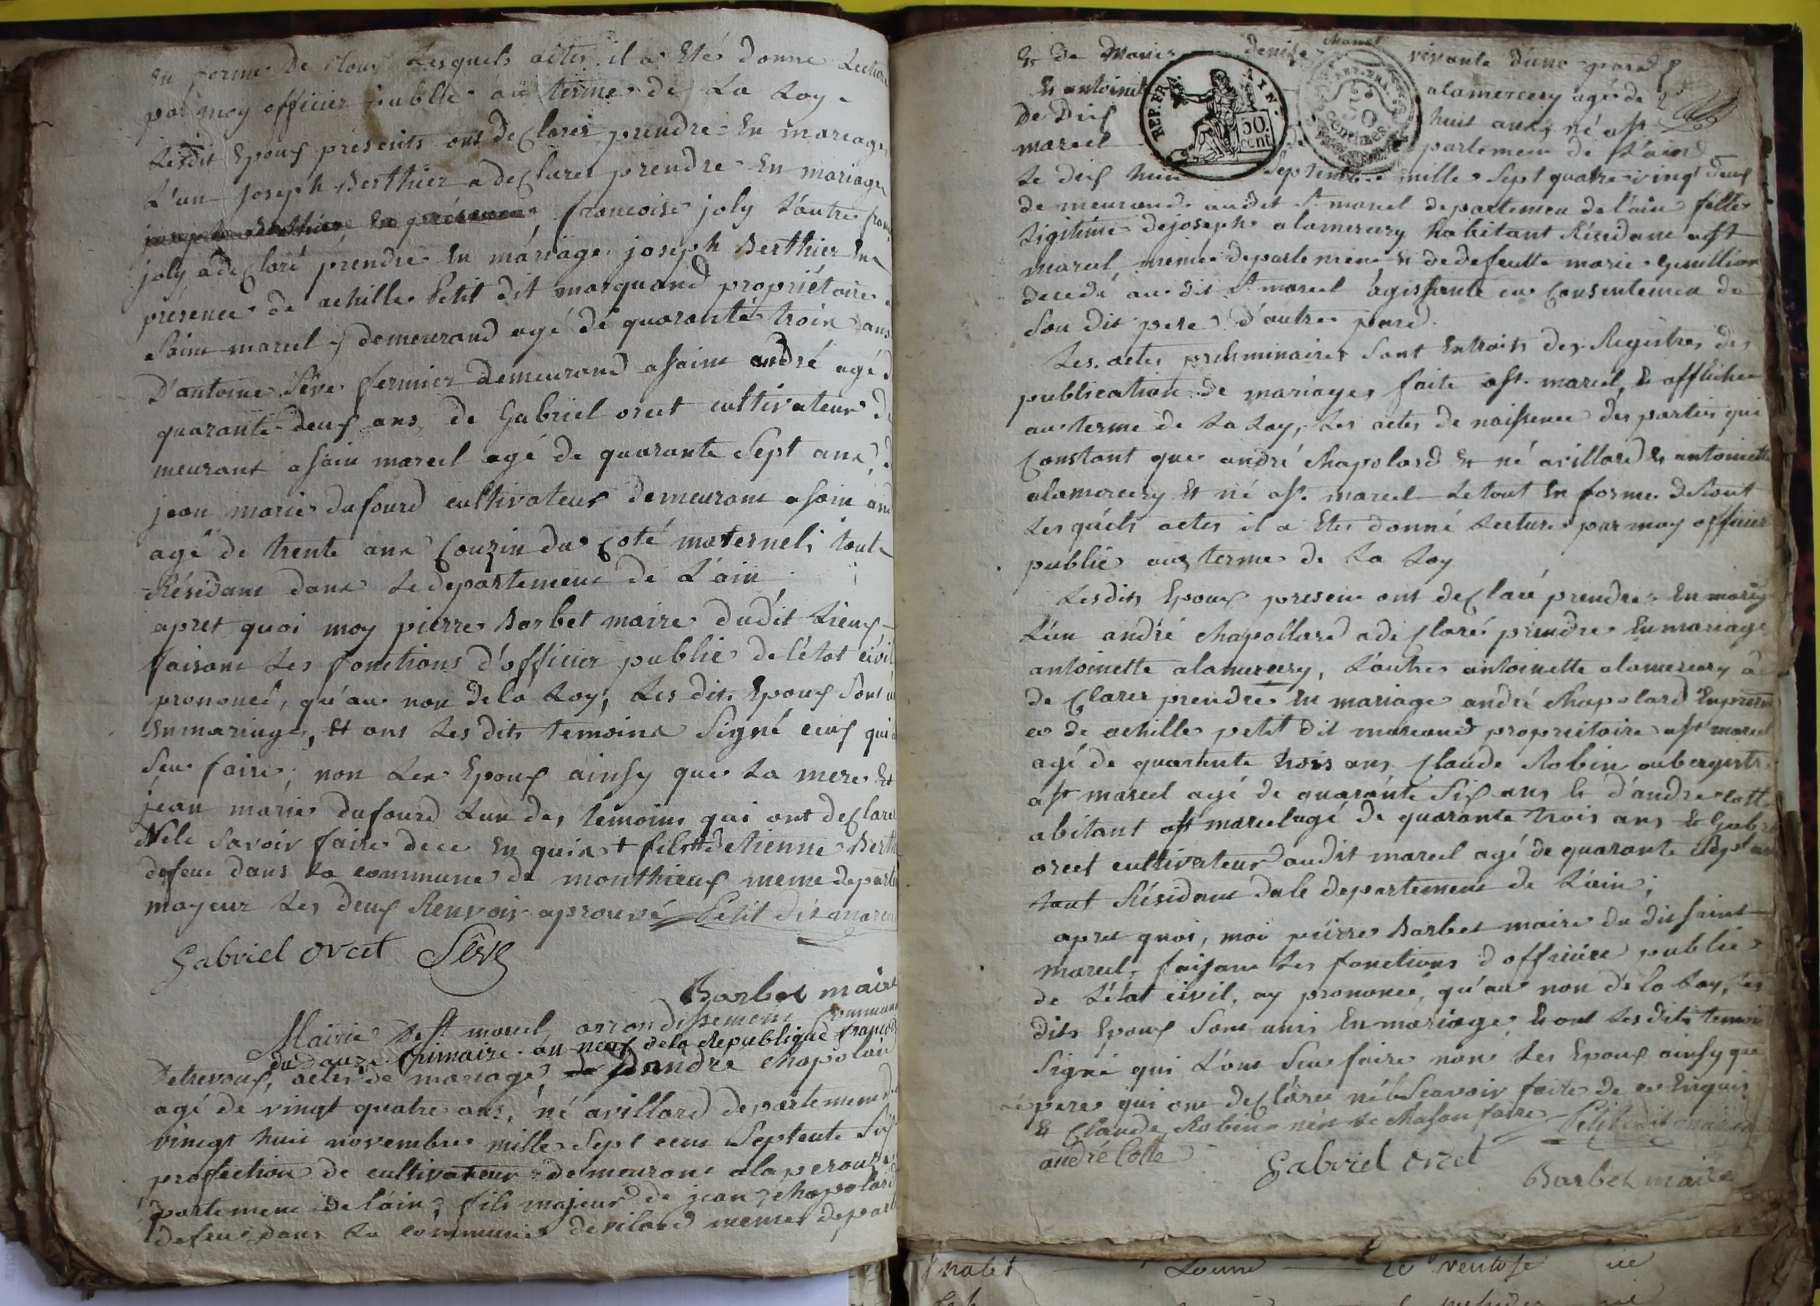 en forme De tous Lesquels actes il a Eté donné Lecture
par moy officier public au terme de La Loy
Lesdit Epoux présents ont declarer prendre En mariage
L'un joseph Berthier a declaré prendre En mariage
francoise joly L'autre
joly a declaré prendre En mariage joseph Berthier En
présence de achille Petit dit marquand propriétaire
Saint marcel y demeurand agé de quarante trois ans
D'antoine Sêve fermier demeurand a saint andré agé
quarante-deux ans, de Gabriel orcet cultivateur de
meurant a sain marcel agé de quarante Sept ans,
jean marie dufourd cultivateur demeurant a sain and
agé de trente ans Couzin du Coté maternel; tout
Résidant dans Le departement de L'ain
apret quoi moy pierre Barbet maire dudit Lieux
faisant Les fonctions d'officier public de L'état civil
prononcé, qu'au non de la Loy, Les dits Epoux sont
En mariage, Et ont Lesdits temoins Signé ceux qui
Seu faire, non Les Epoux ainsy que La mere Et
jean marie dufourd L'un des temoins qui ont declaré
Ne le savoir faire de ce En quis + fils de etienne Berth
defeu dans La commune de monthieux meme depart
majeur Les deux Renvois aprouvé Petit dit marcan
Gabriel orcet Sêve
Barbet maire
Mairie de St marcel, arrondissement Commun
du douze frimaire an neuf de la Republique française
Detrevoux, actes de mariage, D'andré Chapolard
agé de vingt quatre ans, né a villard departement
vingt huit novembre mille Sept cent Septente Six
profection de cultivateur demeurant a laperouse
partement De l'ain, fils majeur de jean Chapolard
defeu dans La commune de vilard memes depart
Et de Marie denise Manet vivante d'une pard
Et antoinet alamercery agé de
De Dix huit ans, né a St
marcel partement de L'ain
Le dix huit Septembre mille Sept quatre vingt deux
REP. FRA. TIN.
50 cent
50 centimes
de meurande audit St marcel departement de L'ain fille
Légitime de joseph alamercery habitant Résidant a St
marcel meme departement Et de defeutte marie
decedé au dit St marcel agissante en Consentement de
Son dit pere d'autre pard.
Les actes preliminaires Sont Extraits des Registres des
publication de mariages faite a St marcel, Et affichée
au terme de La Loy, Les actes de naissence des parties qui
Constant que andré Chapolard Et né a villard Et antoinette
alamercery Et né a St marcel Le tout En forme de tout
Lesquels actes il a Eté donné Lecture par moy officier
public aux terme de La Loy
Lesdits Epoux présent ont declaré prendre En mariag
L'un andré Chapollard a declaré prendre En mariage
antoinette alamercery, L'autre antoinette alamercery a
declarer prendre En mariage andré Chapolard En présen
ce de achille petit dit marcand propriétaire a St marcel
agé de quarante trois ans Claude Robin aubergiste
a St marcel agé de quarante Six ans Et d'andré Cotte
abitant a St marcel agé De quarante trois ans Et Gabriel
orcet cultivateur audit marcel agé de quarante Sept ans
tout Résidant da le departement de L'ain;
apret quoi, moi pierre Barbet maire du dit saint
marcel, faisant Les fonctions d'officière public
de L'état civil, ay prononcé, qu'au non de la Loy, Les
dits Epoux Sont unis En mariage, Et ont Lesdits temoins
Signé qui L'ont Seu faire non Les Epoux ainsy que
pere qui ont declaré né le Scavoir faire de ce Enquis
Et Claude Robin Petit dit marcan
andré Cotte Gabriel orcet
Barbet maire